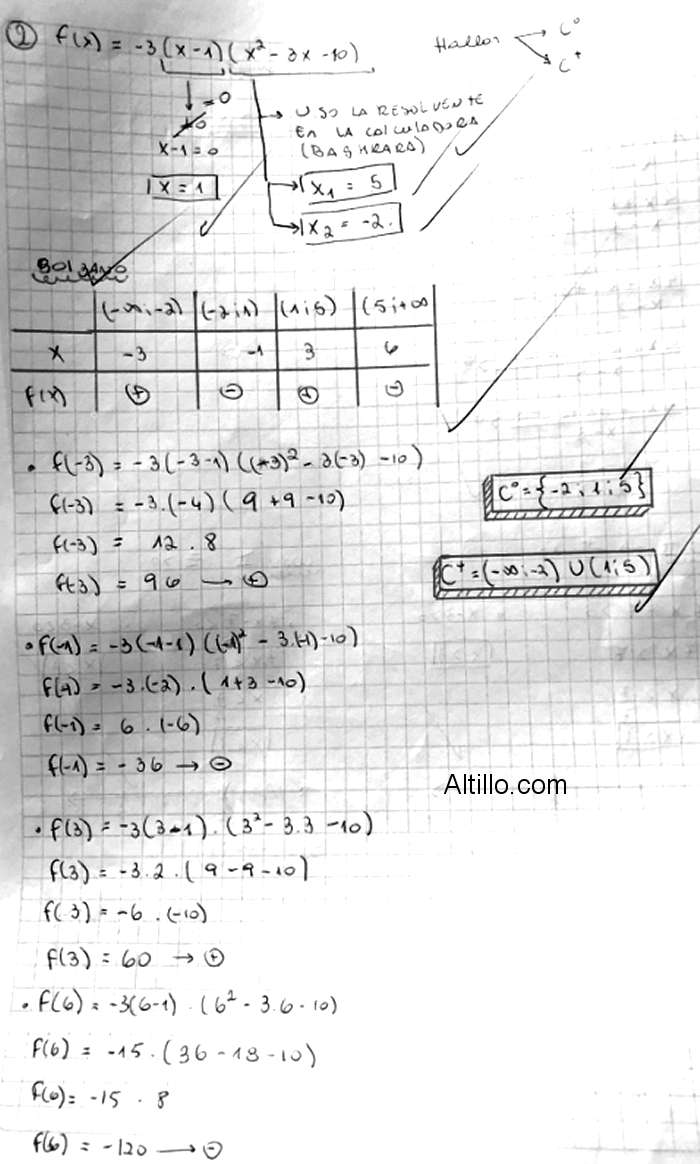 ② f(x) = -3(x-1)(x² - 3x - 10)
Hallar → C⁰
→ C⁺
= 0
x-1=0
x = 1
→ USO LA RESOLVENTE
EN LA CALCULADORA
(BASHKARA)
x₁ = 5
x₂ = -2.
BOLZANO
(-∞;-2) (-2;1) (1;5) (5;+∞
x -3 -1 3 6
f(x) ⊕ ⊖ ⊕ ⊖
• f(-3) = -3(-3-1)((-3)² - 3(-3) -10)
f(-3) = -3.(-4)(9+9-10)
f(-3) = 12.8
f(-3) = 96 → ⊕
C⁰ = {-2;1;5}
C⁺ = (-∞;-2) U (1;5)
• f(-1) = -3(-1-1)((-1)² - 3.(-1)-10)
f(-1) = -3.(-2).(1+3-10)
f(-1) = 6.(-6)
f(-1) = -36 → ⊖
Altillo.com
• f(3) = -3(3-1).(3²-3.3-10)
f(3) = -3.2.(9-9-10)
f(3) = -6.(-10)
f(3) = 60 → ⊕
• f(6) = -3(6-1).(6²-3.6-10)
f(6) = -15.(36-18-10)
f(6) = -15.8
f(6) = -120 → ⊖